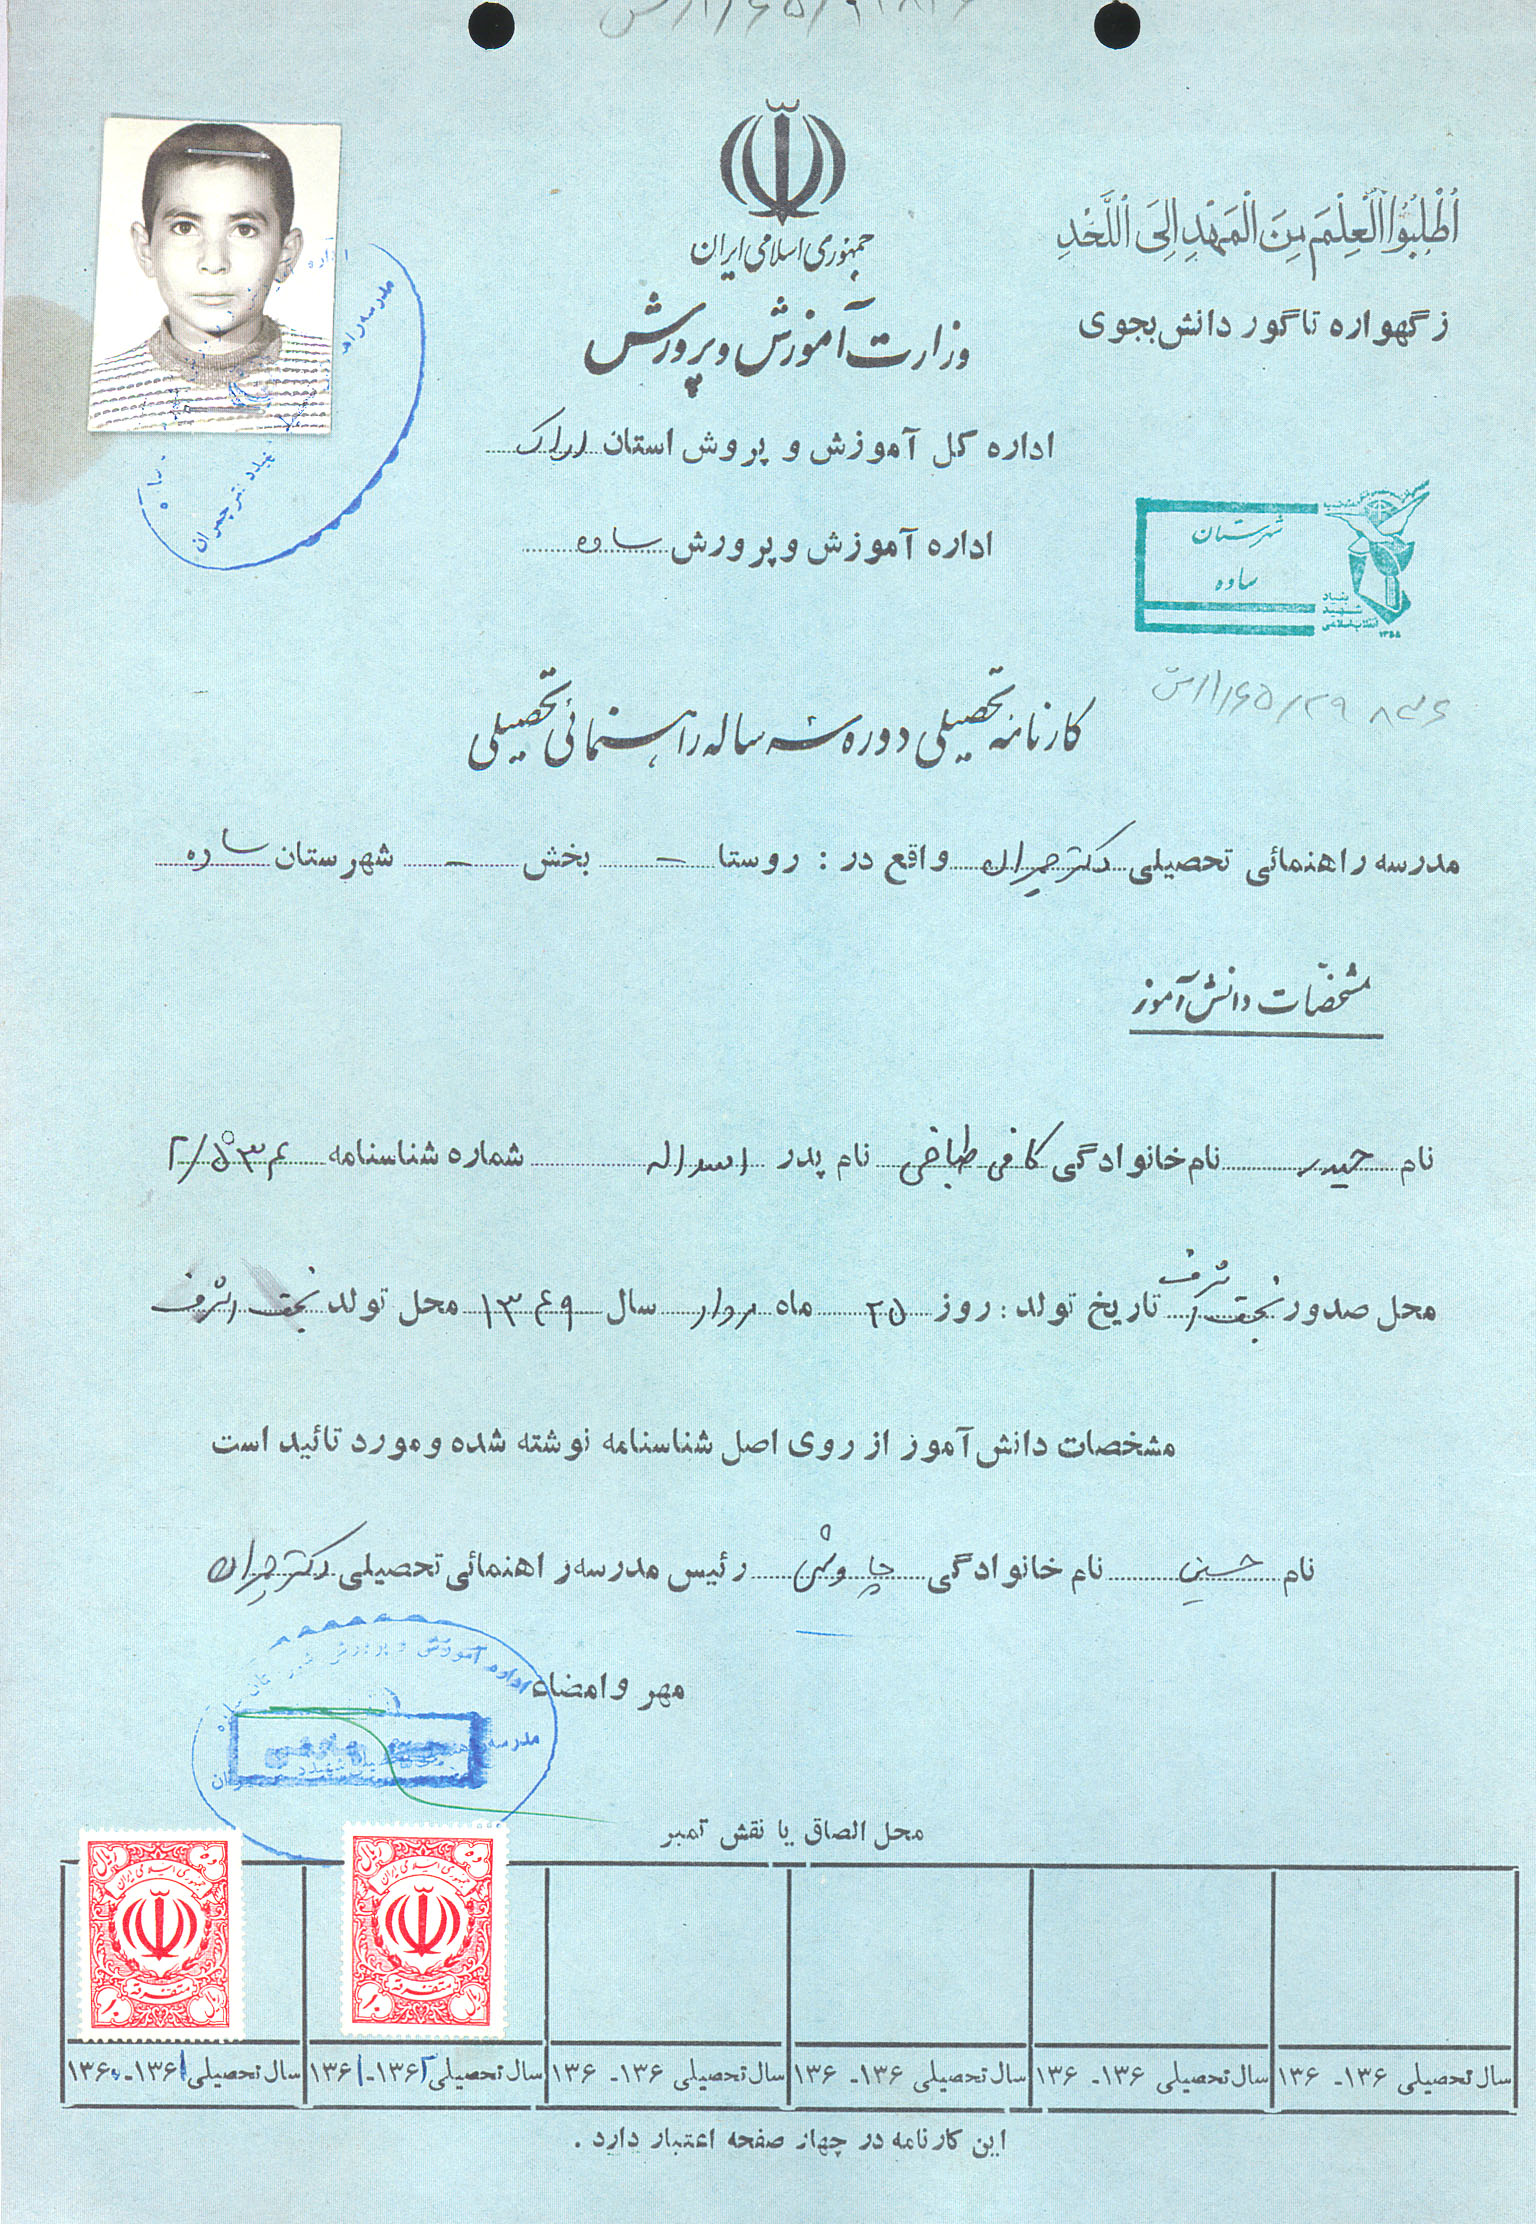 اُطْلُبُوا الْعِلْمَ مِنَ الْمَهْدِ اِلَى اللَّحْدِ
ز گهواره تا گور دانش بجوی
جمهوری اسلامی ایران
وزارت آموزش و پرورش
اداره کل آموزش و پروش استان اراک
اداره آموزش و پرورش ساوه
شهرستان
ساوه
بنیاد
شهید
انقلاب اسلامی
۱۳۵۸
کارنامه تحصیلی دوره سه ساله راهنمائی تحصیلی
مدرسه راهنمائی تحصیلی دکتر چمران واقع در : روستا - بخش - شهرستان ساوه
مشخصات دانش آموز
نام حیدر نام خانوادگی کافی طباخی نام پدر اسداله شماره شناسنامه
محل صدور نجف اشرف تاریخ تولد : روز ۲۵ ماه سال ۱۳۴۹ محل تولد نجف اشرف
مشخصات دانش آموز از روی اصل شناسنامه نوشته شده و مورد تائید است
نام حسین نام خانوادگی چاوشی رئیس مدرسه راهنمائی تحصیلی دکتر چمران
مهر و امضاء
اداره آموزش و پرورش
مدرسه
محل الصاق یا نقش تمبر
جمهوری اسلامی ایران
متفرقه
ریال
جمهوری اسلامی ایران
متفرقه
ریال
سال تحصیلی ۱۳۶ - ۱۳۶
سال تحصیلی ۱۳۶ - ۱۳۶
سال تحصیلی ۱۳۶ - ۱۳۶
سال تحصیلی ۱۳۶ - ۱۳۶
سال تحصیلی ۱۳۶۲ - ۱۳۶۱
سال تحصیلی ۱۳۶۱ - ۱۳۶۰
این کارنامه در چهار صفحه اعتبار دارد .